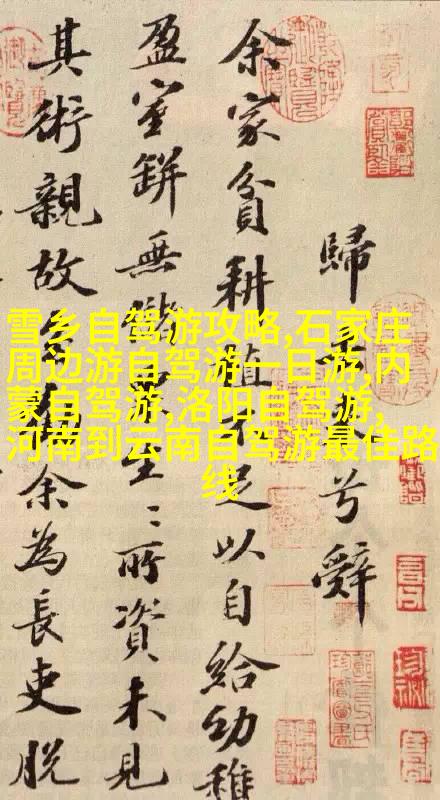 歸去来兮辭
余家貧耕植不足以自給幼稚
盈室缾無儲粟生〻所資未見
其術親故多勸余為長吏脫
雪乡自驾游攻略,石家庄
周边游自驾游一日游,内
蒙自驾游,洛阳自驾游,
河南到云南自驾游最佳路
线